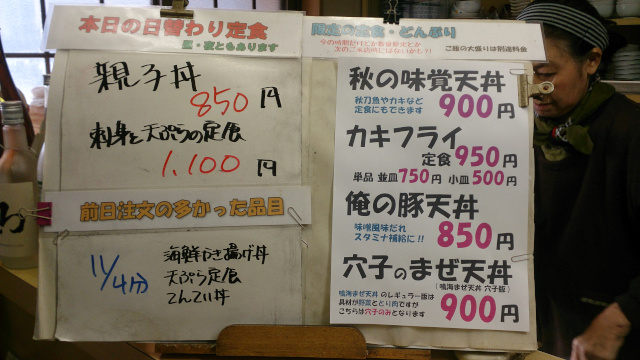 本日の日替わり定食
昼・夜ともあります
親子丼
850円
刺身と天ぷらの定食
1,100円
前日注文の多かった品目
11/4分
海鮮かき揚げ丼
天ぷら定食
てんてい丼
限定の定食・どんぶり
ご飯の大盛りは別途料金
秋の味覚天丼
秋刀魚やカキなど
定食にもできます
900円
カキフライ
定食950円
単品 並皿750円 小皿500円
俺の豚天丼
味噌風味だれ
スタミナ補給に!!
850円
穴子のまぜ天丼
(鳴海まぜ天丼 穴子版)
鳴海まぜ天丼 のレギュラー版は
具材が野菜ととり肉ですが
こちらは穴子のみとなります
900円